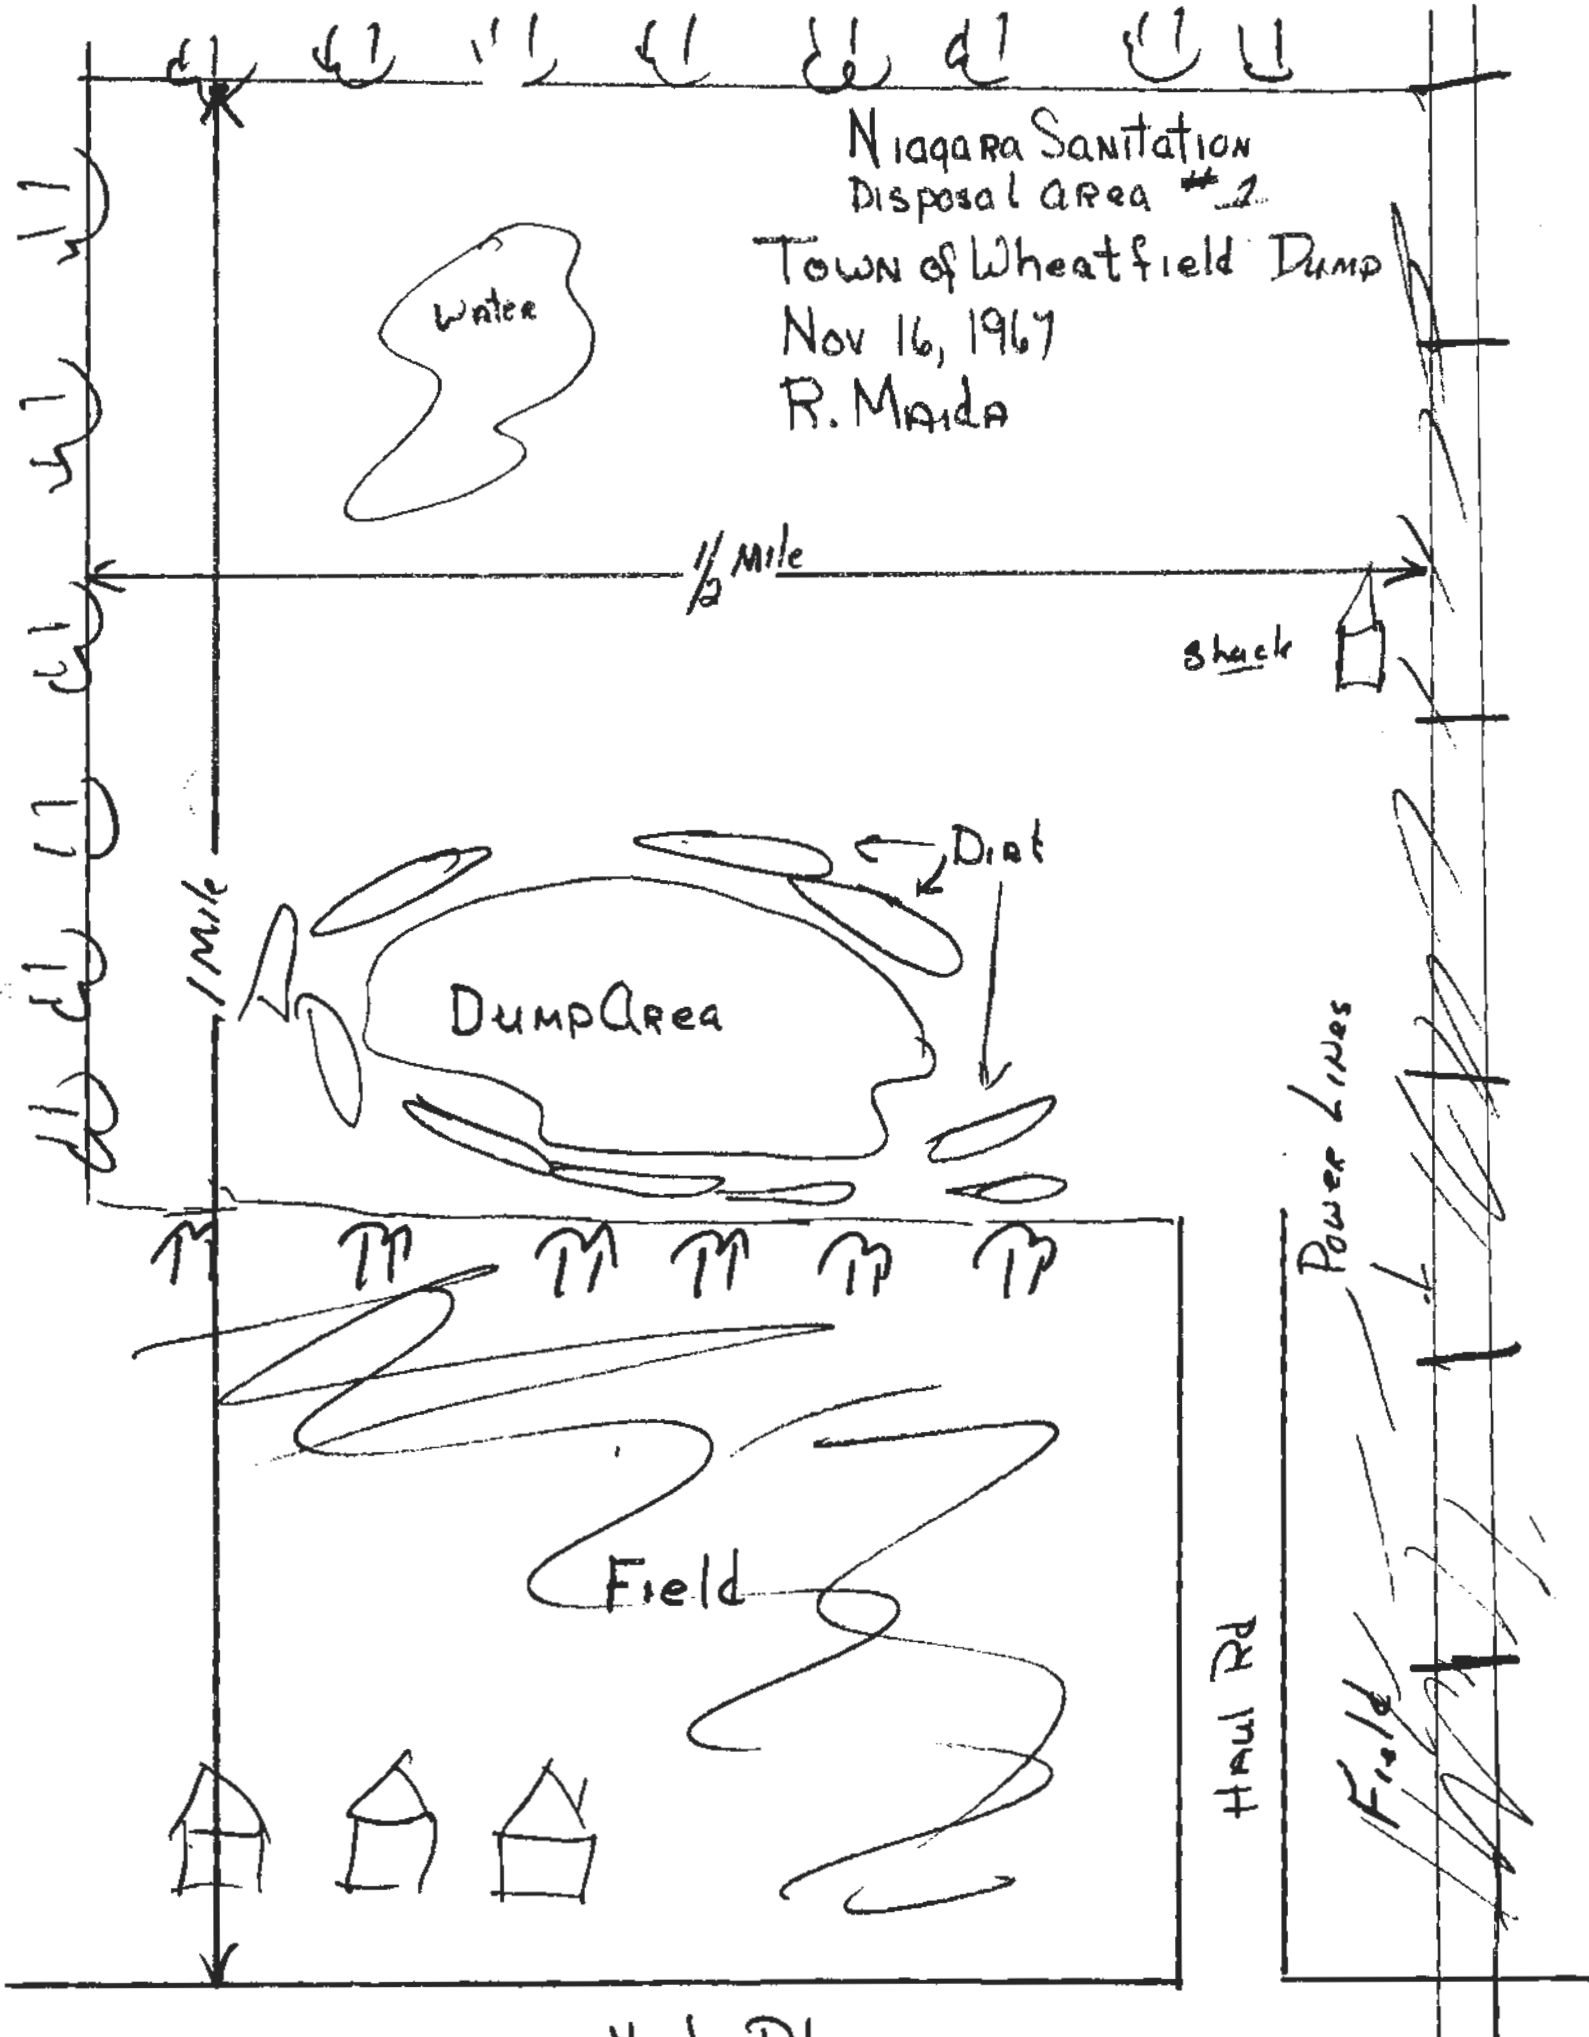 Niagara Sanitation
Disposal Area #1
Town of Wheatfield Dump
Nov 16, 1967
R. Maida
Water
1/2 Mile
shack
Dirt
1 Mile
Dump Area
Power Lines
Field
Haul Rd
Field